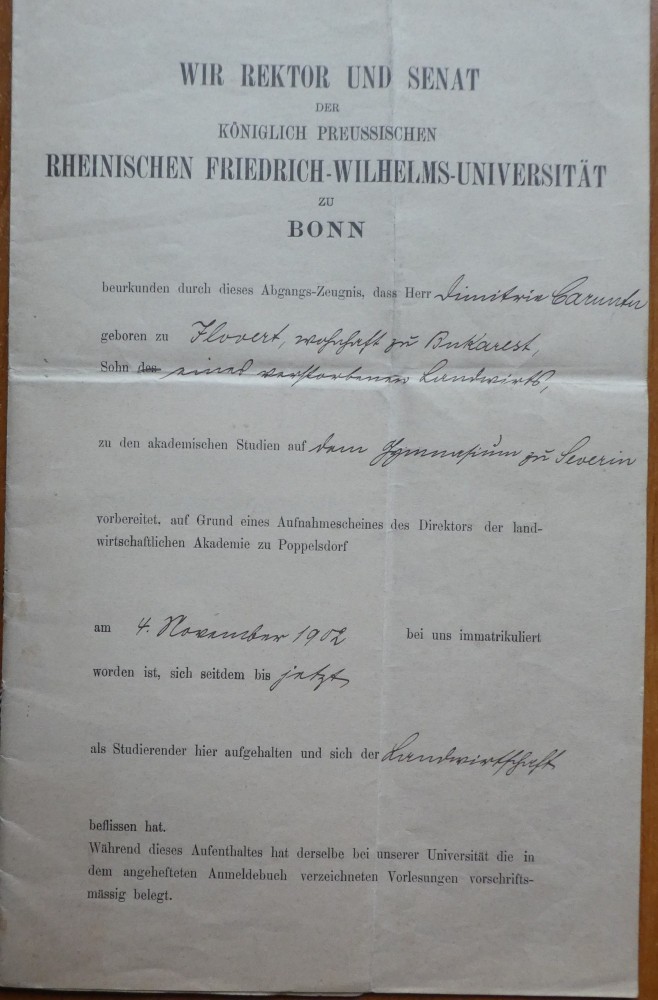 WIR REKTOR UND SENAT
DER
KÖNIGLICH PREUSSISCHEN
RHEINISCHEN FRIEDRICH-WILHELMS-UNIVERSITÄT
ZU
BONN
beurkunden durch dieses Abgangs-Zeugnis, dass Herr Dimitrie
geboren zu wohnhaft zu Bukarest,
Sohn des eines verstorbenen Landwirts,
zu den akademischen Studien auf dem Gymnasium zu Severin
vorbereitet, auf Grund eines Aufnahmescheines des Direktors der land-
wirtschaftlichen Akademie zu Poppelsdorf
am 4. November 1902 bei uns immatrikuliert
worden ist, sich seitdem bis jetzt
als Studierender hier aufgehalten und sich der Landwirtschaft
beflissen hat.
Während dieses Aufenthaltes hat derselbe bei unserer Universität die in
dem angehefteten Anmeldebuch verzeichneten Vorlesungen vorschrifts-
mässig belegt.